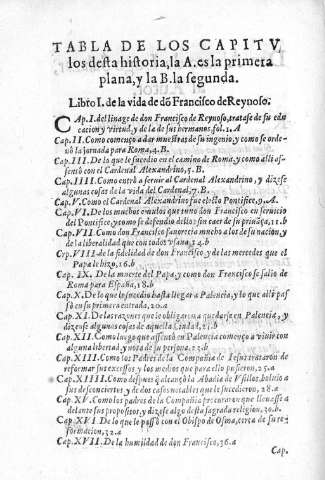 TABLA DE LOS CAPITV
los desta historia, la A. es la primera
plana, y la B. la segunda.
Libro I. de la vida de dō Francisco de Reynoso.
CAp. I. del linage de don Francisco de Reynoso, tratase de su edu
cacion y virtud, y de la de sus hermanos. fol. 1. A
Cap. II. Como començo a dar muestras de su ingenio y como se orde
nò la jornada para Roma, 4. B.
Cap. III. De lo que le sucedio en el camino de Roma, y como alli as
sentò con el Cardenal Alexandrino, 5. B.
Cap. IIII. Como entrò a seruir al Cardenal Alexandrino, y dizese
algunas cosas de la vida del Cardenal, 7. B.
Cap. V. Como el Cardenal Alexandrino fue electo Pontifice, 9. A.
Cap. VI. De los muchos emulos que tuuo don Francisco en seruicio
del Pontifice, y como se defendio dellos sin caer de su priuāça, 11. b
Cap. VII. Como don Francisco fauorecio mucho a los de su nacion, y
de la liberalidad que con todos vsaua, 14. b
Cap. VIII. de la fidelidad de don Francisco, y de las mercedes que el
Papa le hizo, 16. b
Cap. IX. De la muerte del Papa, y como don Francisco se salio de
Roma para España, 18. b
Cap. X. De lo que le sucedio hasta llegar a Palencia, y lo que alli pas
sò en su primera entrada, 20. a
Cap. XI. De las razones que le obligaron a quedarse en Palencia, y
dizense algunas cosas de aquella Ciudad, 21. b
Cap. XII. Como luego que assentò en Palencia començo a viuir con
alguna libertad, y nota de su persona, 23. b
Cap. XIII. Como los Padres de la Compañia de Iesus trataron de
reformar sus excessos, y los medios que para ello pusieron, 25. a
Cap. XIIII. Como despues q̄ alcançò la Abadia de Vsillos, boluio a
sus desconciertos, y de dos casos notables que le sucedieron, 28. a
Cap. XV. Como los padres de la Compañia procuraron que lleuasse a
delante sus propositos, y dizese algo desta sagrada religion, 30. b.
Cap. XVI. De lo que le passò con el Obispo de Osma, cerca de su re
formacion, 32. a
Cap. XVII. De la humildad de don Francisco, 36. a
Cap.